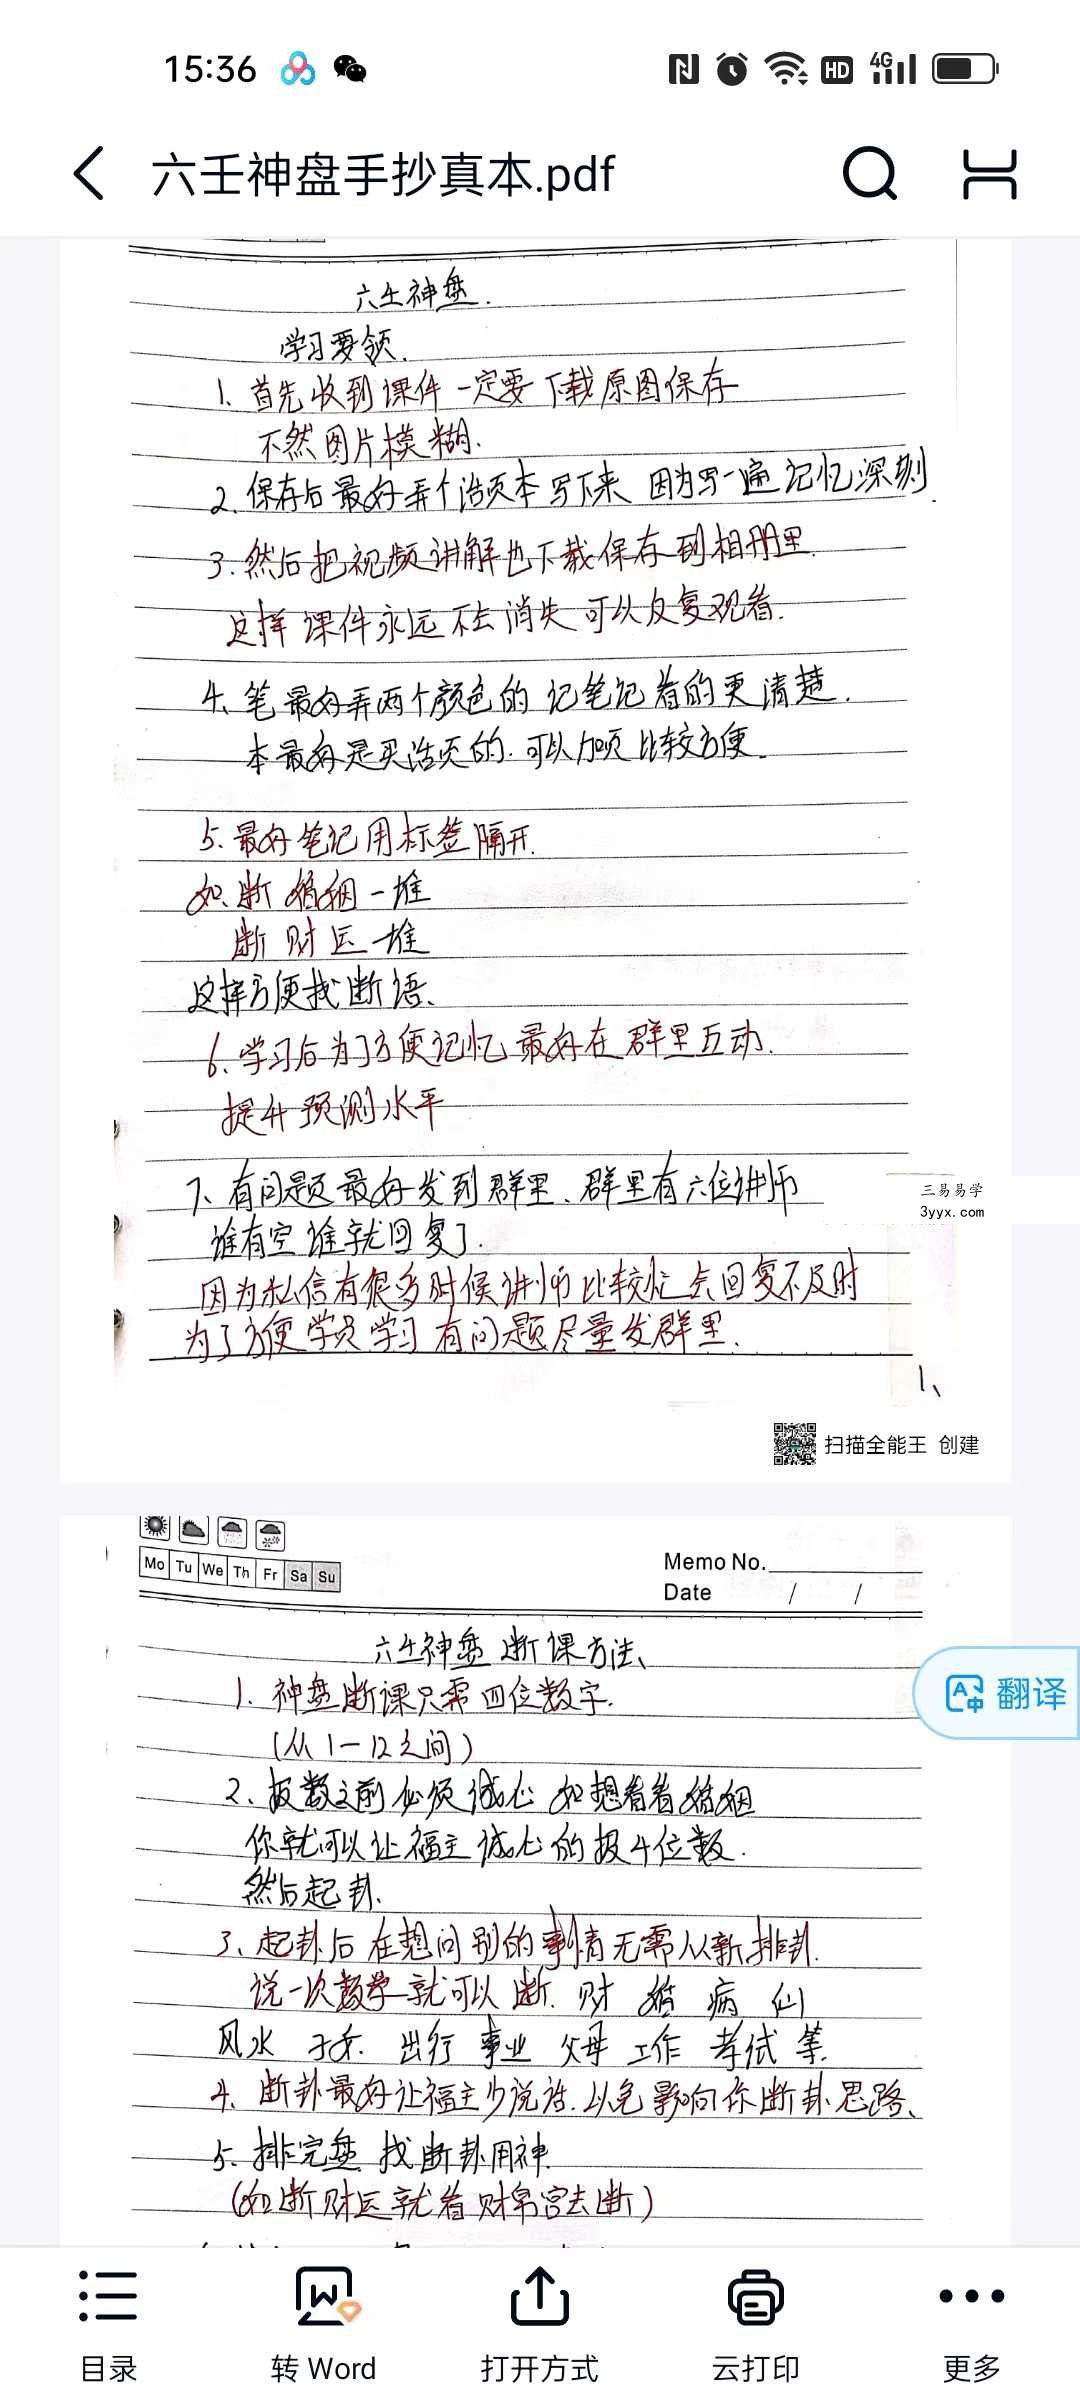 15:36
4G
HD
六壬神盘手抄真本.pdf
六壬神盘.
学习要领.
1、首先收到课件一定要下载原图保存
不然图片模糊.
2、保存后最好弄个活页本写下来 因为写一遍记忆深刻.
3、然后把视频讲解也下载保存到相册里.
这样课件永远不会消失可以反复观看.
4、笔最好弄两个颜色的 记笔记看的更清楚.
本最好是买活页的.可以加页比较方便.
5、最好笔记用标签隔开.
如、断婚姻一堆
断财运一堆
这样方便找断语、
6、学习后为了方便记忆最好在群里互动.
提升预测水平
7、有问题最好发到群里、群里有六位讲师
谁有空谁就回复了.
因为私信有很多时候讲师比较忙会回复不及时
为了方便学员学习有问题尽量发群里.
三易易学
3yyx.com
1、
扫描全能王 创建
Mo Tu We Th Fr Sa Su
Memo No.
Date / /
六壬神盘断课方法、
1、神盘断课只需四位数字.
(从1-12之间)
2、报数之前必须诚心 如想看看婚姻
你就可以让福主诚心的报4位数.
然后起卦.
3、起卦后在想问别的事情无需从新排卦.
说一次数字就可以断.财 婚 病 仙
风水 子女. 出行 事业 父母 工作 考试 等.
4、断卦最好让福主少说话.以免影响你断卦思路、
5、排完盘 找断卦用神.
(如断财运就看财帛宫去断)
翻译
目录
转 Word
打开方式
云打印
更多